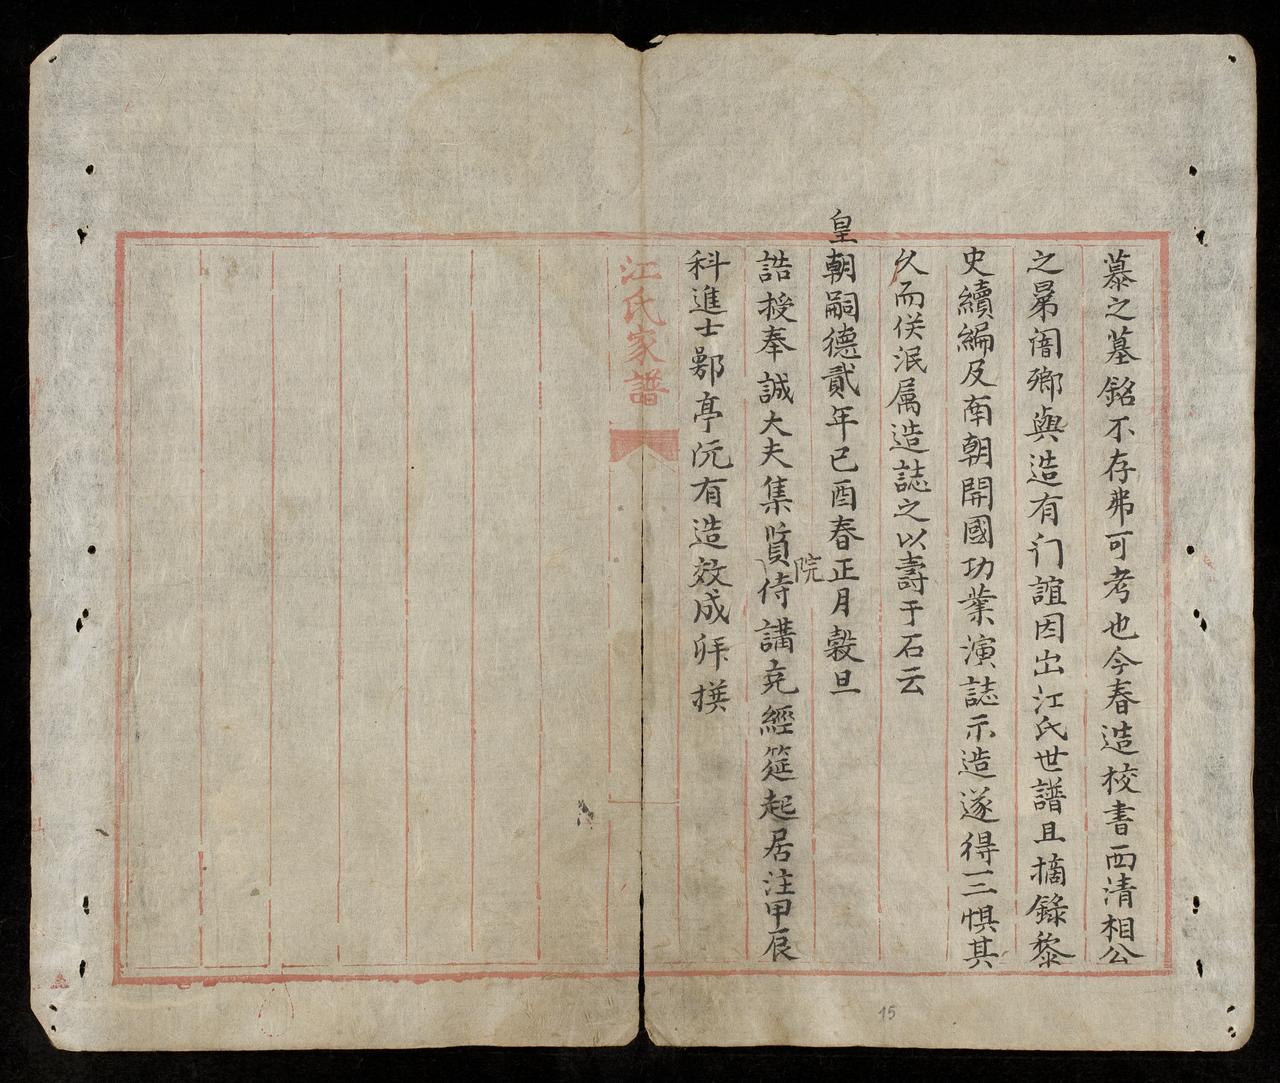 慕之墓銘不存弗可考也今春造校書西清相公
之晜誾鄉與造有门誼因出江氏世譜且摘錄黎
史續編及南朝開國功業演誌示造遂得三惧其
久而佚泯属造誌之以壽于石云
皇朝嗣德貳年已酉春正月榖旦
誥授奉誠大夫集賢院侍講充經筵起居注甲辰
科進士鄚亭沅有造效成拜撰
江氏家譜
15